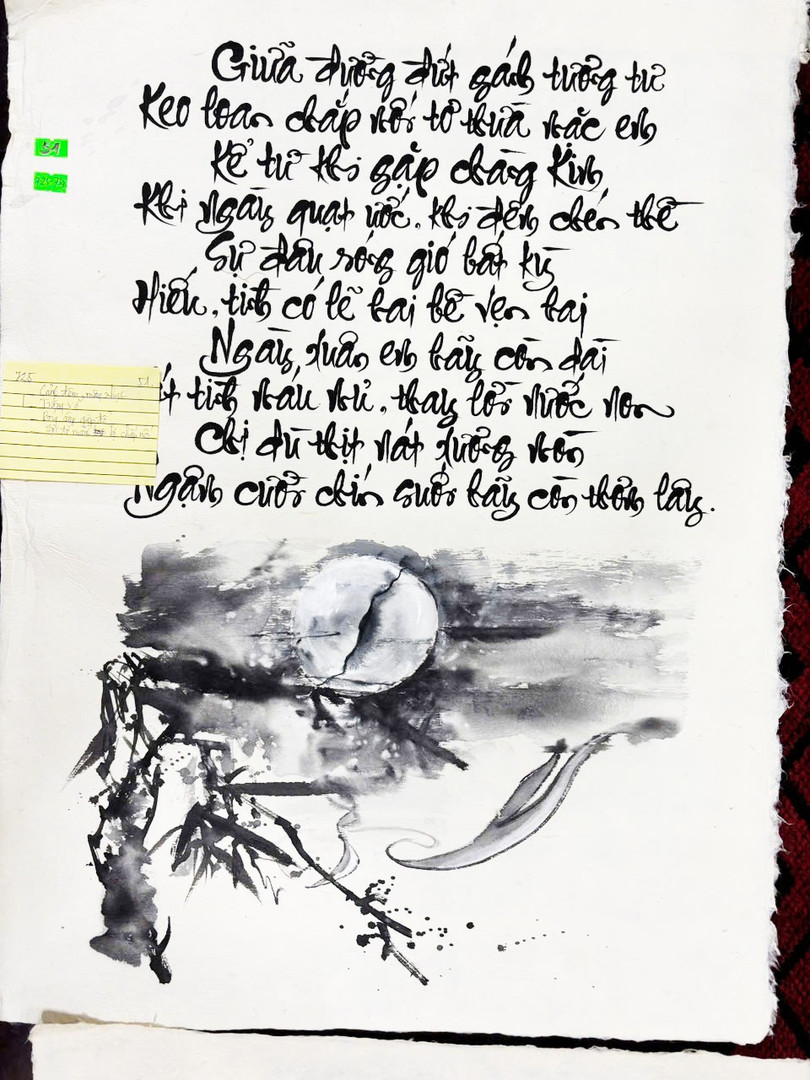 Giữa đường đứt gánh tương tư
Keo loan chắp nối tơ thừa mặc em
Kể từ khi gặp chàng Kim
Khi ngày quạt ước, khi đêm chén thề
Sự đâu sóng gió bất kỳ
Hiếu, tình có lẽ hai bề vẹn hai
Ngày, xuân em hãy còn dài
t tình máu mủ, thay lời nước non
Chị dù thịt nát xương mòn
Ngậm cười chín suối hãy còn thơm lây.
51
725-73
725 51